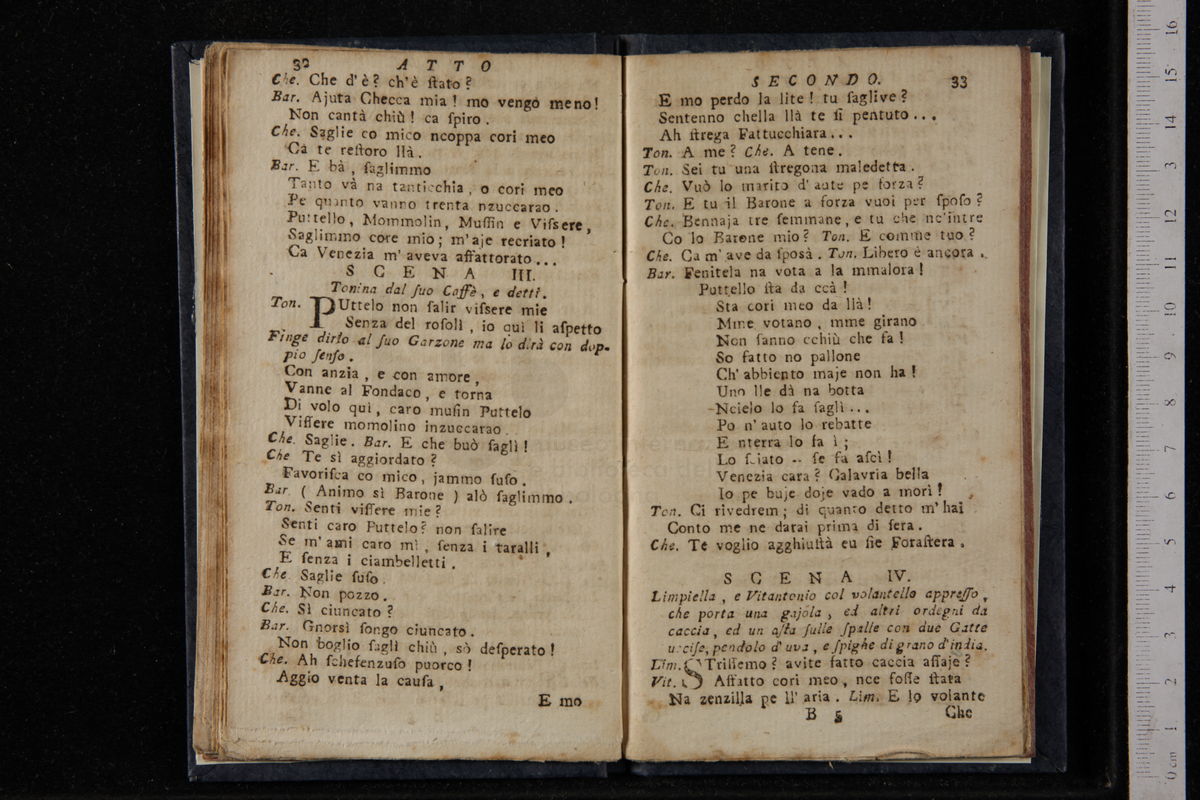 32 ATTO
Che. Che d'è? ch'è ſtato?
Bar. Ajuta Checca mia! mo vengo meno!
Non cantà chiù! ca ſpiro.
Che. Saglie co mico ncoppa cori meo
Cà te reſtoro llà.
Bar. E bà, ſaglimmo
Tanto và na tanticchia, o cori meo
Pe quanto vanno trenta nzuccarao.
Puttello, Mommolin, Muſſin e Viſsere,
Saglimmo core mio; m'aje recriato!
Ca Venezia m'aveva affattorato...
SCENA III.
Tonina dal ſuo Caffè, e detti.
Ton. PUttelo non ſalir viſsere mie
Senza del roſolì, io quì li aſpetto
Finge dirlo al ſuo Garzone ma lo dirà con dop-
pio ſenſo.
Con anzia, e con amore,
Vanne al Fondaco, e torna
Di volo quì, caro muſin Puttelo
Viſſere momolino inzuccarao.
Che. Saglie. Bar. E che buò ſaglì!
Che Te sì aggiordato?
Favoriſca co mico, jammo ſuſo.
Bar. (Animo sì Barone) alò ſaglimmo.
Ton. Senti viſſere mie?
Senti caro Puttelo? non ſalire
Se m'ami caro mì, ſenza i taralli,
E ſenza i ciambelletti.
Che. Saglie ſuſo.
Bar. Non pozzo.
Che. Sì ciuncato?
Bar. Gnorsì ſongo ciuncato.
Non boglio ſaglì chiù, sò deſperato!
Che. Ah ſchefenzuſo puorco!
Aggio venta la cauſa,
E mo
SECONDO. 33
E mo perdo la lite! tu ſaglive?
Sentenno chella llà te ſi pentuto...
Ah ſtrega Fattucchiara...
Ton. A me? Che. A tene.
Ton. Sei tu una ſtregona maledetta.
Che. Vuò lo marito d'aute pe forza?
Ton. E tu il Barone a forza vuoi per ſpoſo?
Che. Bennaja tre femmane, e tu che nc'intre
Co lo Barone mio? Ton. E comme tuo?
Che. Ca m'ave da ſposà. Ton. Libero è ancora.
Bar. Fenitela na vota a la mmalora!
Puttello ſta da ccà!
Sta cori meo da llà!
Mme votano, mme girano
Non ſanno cchiù che fa!
So fatto no pallone
Ch'abbiento maje non ha!
Uno lle dà na botta
Ncielo lo fa ſaglì...
Po n'auto lo rebatte
E nterra lo fa ì;
Lo ſciato -- ſe fa aſcì!
Venezia cara? Calavria bella
Io pe buje doje vado a morì!
Ton. Ci rivedrem; di quanto detto m'hai
Conto me ne darai prima di ſera.
Che. Te voglio agghiuſtà eu ſie Foraſtera.
SCENA IV.
Limpiella, e Vitantonio col volantello appreſſo,
che porta una gajola, ed altri ordegni da
caccia, ed un aſta ſulle ſpalle con due Gatte
ucciſe, pendolo d'uva, e ſpighe di grano d'india.
Lim. STriſſemo? avite fatto caccia aſſaje?
Vit. Affatto cori meo, nce foſſe ſtata
Na zenzilla pe ll'aria. Lim. E lo volante
B 5 Che